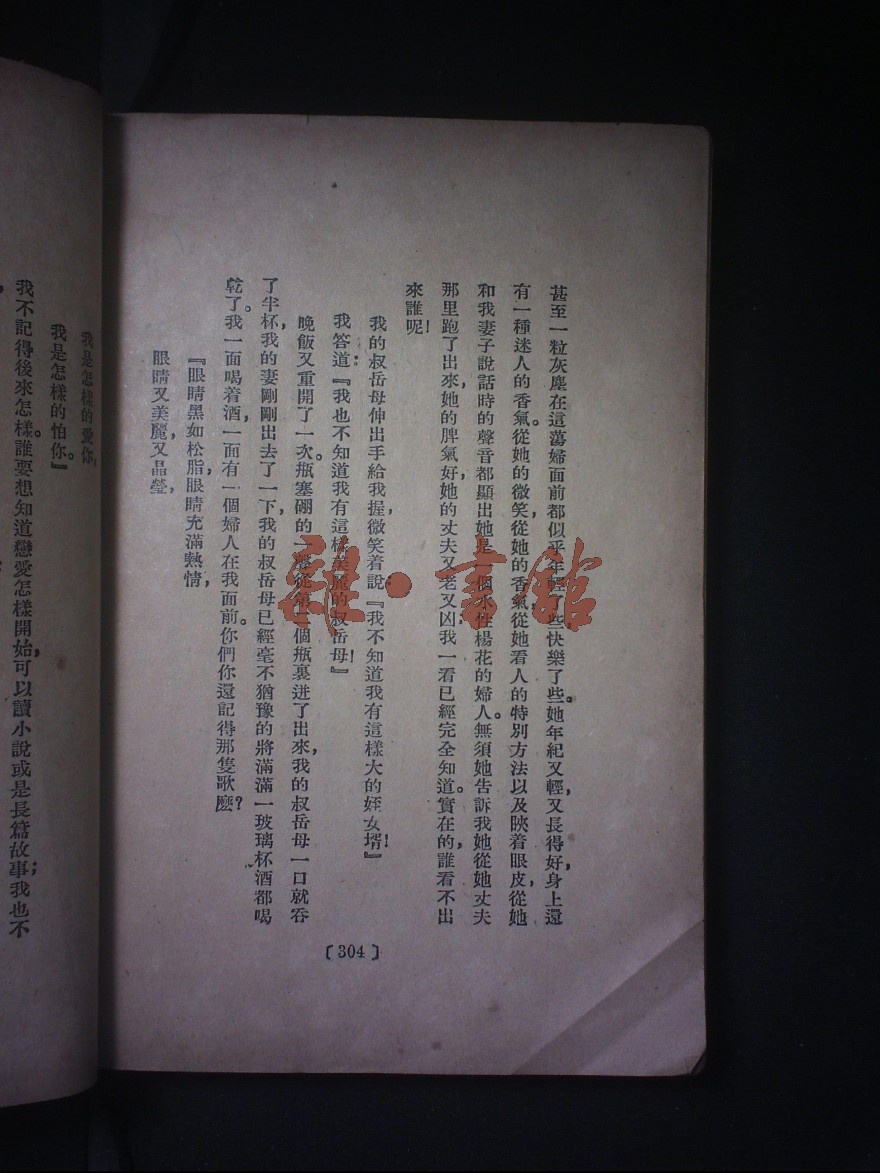 甚至一粒灰塵在這蕩婦面前都似乎年輕了些，快樂了些。她年紀又輕，又長得好，身上還
有一種迷人的香氣。從她的微笑，從她的香氣從她看人的特別方法以及䀹着眼皮，從她
和我妻子說話時的聲音都顯出她是一個水性楊花的婦人。無須她告訴我她從她丈夫
那里跑了出來，她的脾氣好，她的丈夫又老又凶；我一看已經完全知道。實在的，誰看不出
來誰呢！
我的叔岳母伸出手給我握，微笑着說：『我不知道我有這樣大的姪女壻！』
我答道：『我也不知道我有這樣美麗的叔岳母！』
晚飯又重開了一次。瓶塞硼的一聲從第二個瓶裏迸了出來，我的叔岳母一口就吞
了半杯，我的妻剛剛出去了一下，我的叔岳母已經毫不猶豫的將滿滿一玻璃杯酒都喝
乾了。我一面喝着酒，一面有一個婦人在我面前。你們你還記得那隻歌麽？
『眼睛黑如松脂，眼睛充滿熱情，
眼睛又美麗，又晶瑩，
〔304〕
我是怎樣的愛你，
我是怎樣的怕你。』
我不記得後來怎樣。誰要想知道戀愛怎樣開始，可以讀小說或是長篇故事；我也不
雜·書館